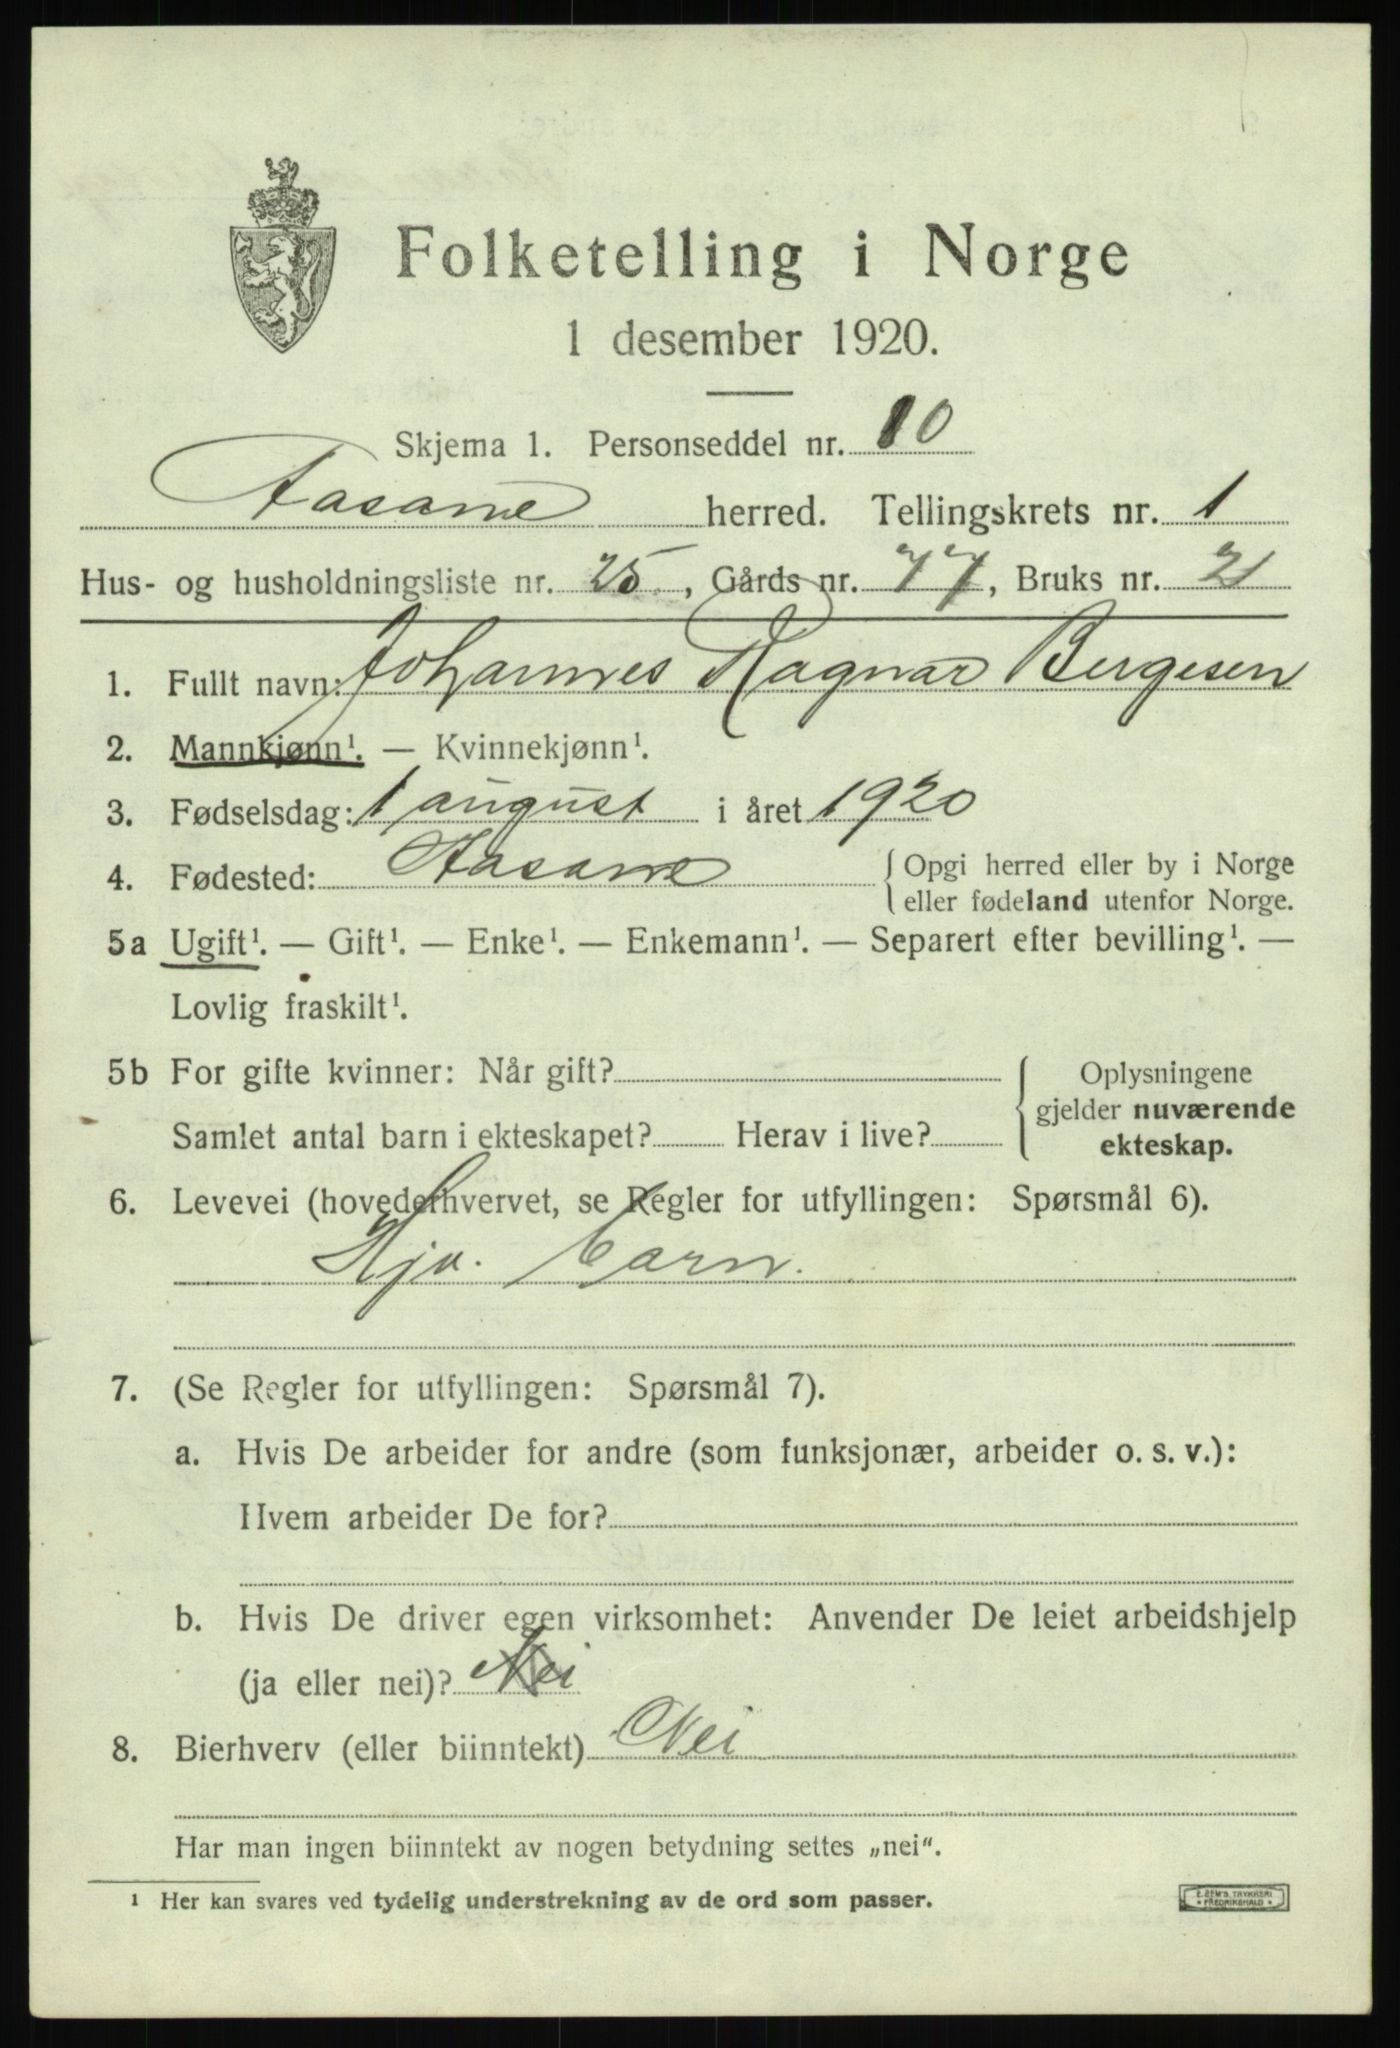 Folketelling i Norge
1 desember 1920.
Skjema 1. Personseddel nr. 10
Aasane herred. Tellingskrets nr. 1
Hus- og husholdningsliste nr. 25, Gårds nr. 77, Bruks nr. 21
1. Fullt navn: Johannes Ragnar Bergesen
2. Mannkjønn¹. — Kvinnekjønn¹.
3. Fødselsdag: 1 august i året 1920
4. Fødested: Aasane { Opgi herred eller by i Norge
eller fødeland utenfor Norge.
5a Ugift¹. — Gift¹. — Enke¹. — Enkemann¹. — Separert efter bevilling¹. —
Lovlig fraskilt¹.
5b For gifte kvinner: Når gift? { Oplysningene
gjelder nuværende
Samlet antal barn i ekteskapet? Herav i live?
ekteskap.
6. Levevei (hovederhvervet, se Regler for utfyllingen: Spørsmål 6).
barn.
7. (Se Regler for utfyllingen: Spørsmål 7).
a. Hvis De arbeider for andre (som funksjonær, arbeider o. s. v.):
Hvem arbeider De for?
b. Hvis De driver egen virksomhet: Anvender De leiet arbeidshjelp
(ja eller nei)? Nei
8. Bierhverv (eller biinntekt) Nei
Har man ingen biinntekt av nogen betydning settes „nei“.
¹ Her kan svares ved tydelig understrekning av de ord som passer.
E. SEM'S TRYKKERI
* FREDRIKSHALD *